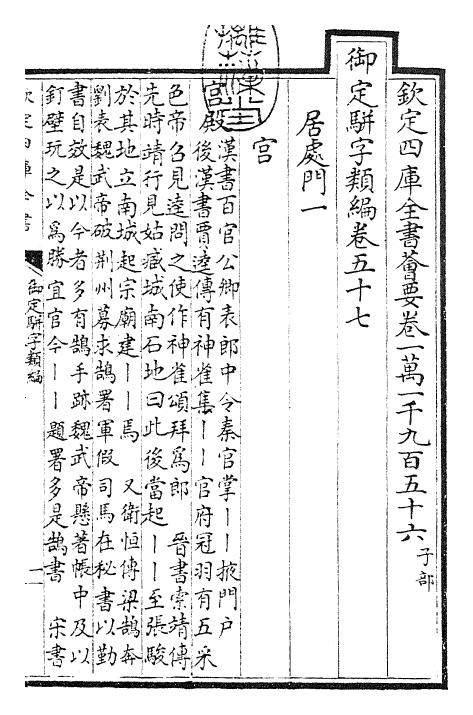 欽定四庫全書薈要卷一萬一千九百五十六 子部
御定駢字類編卷五十七
居處門一
宮
宮殿 漢書百官公卿表郎中令秦官掌丨丨掖門戶
後漢書賈逵傳有神雀集丨丨官府冠羽有五采
色帝召見逵問之使作神雀頌拜為郎 晉書索靖傳
先時靖行見姑臧城南石地曰此後當起丨丨至張駿
於其地立南城起宗廟建丨丨焉 又衛恒傳梁鵠奔
劉表魏武帝破荆州募求鵠署軍假司馬在秘書以勤
書自效是以今者多有鵠手跡魏武帝懸著帳中及以
釘壁玩之以為勝宜官今丨丨題署多是鵠書 宋書
欽定四庫全書
御定駢字類編
一